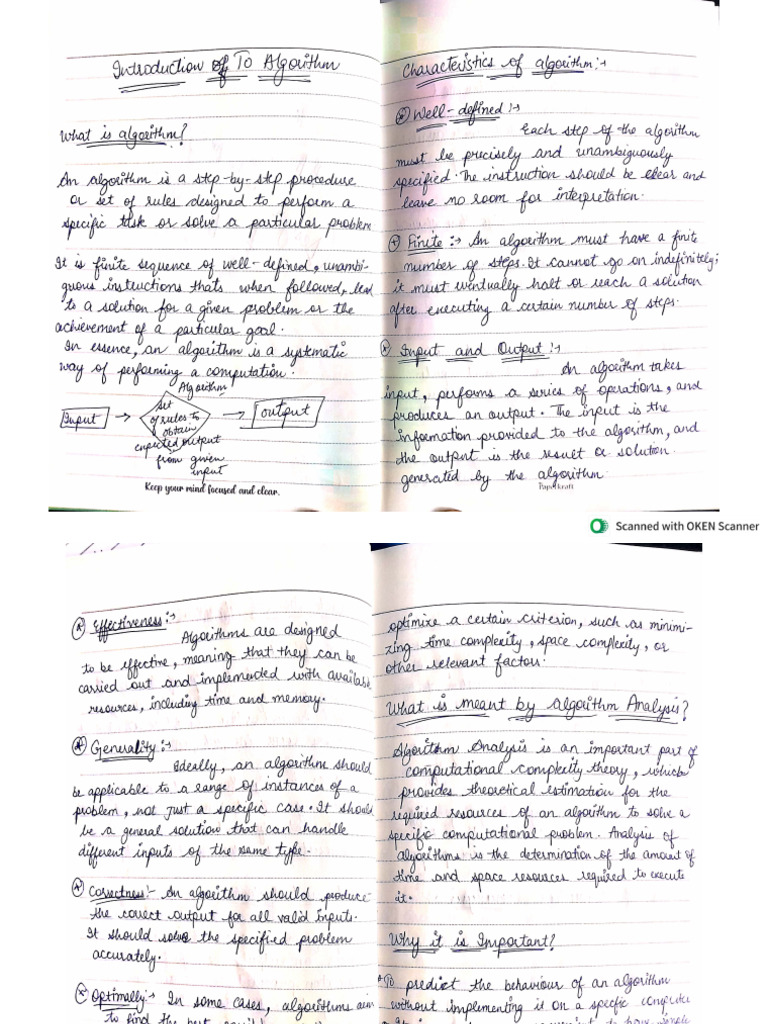 Introduction of To Algorithm
What is algorithm?
An algorithm is a step-by-step procedure
or set of rules designed to perform a
specific task or solve a particular problem
It is finite sequence of well-defined, unambi-
guous instructions thats when followed, lead
to a solution for a given problem or the
achievement of a particular goal.
In essence, an algorithm is a systematic
way of performing a computation.
Algorithm
Input → set → output
of rules to
obtain
expected output
from given
input
Keep your mind focused and clear.
Characteristics of algorithm:→
Well-defined :→
Each step of the algorithm
must be precisely and unambiguously
specified. The instruction should be clear and
leave no room for interpretation.
Finite :→ An algorithm must have a finite
number of steps. It cannot go on indefinitely;
it must eventually halt or reach a solution
after executing a certain number of steps.
Input and Output :→
An algorithm takes
input, performs a series of operations, and
produces an output. The input is the
information provided to the algorithm, and
the output is the result or solution.
generated by the algorithm.
Paperkraft
Scanned with OKEN Scanner
Effectiveness :→
Algorithms are designed
to be effective, meaning that they can be
carried out and implemented with available
resources, including time and memory.
Generality :→
Ideally, an algorithm should
be applicable to a range of instances of a
problem, not just a specific case. It should
be a general solution that can handle
different inputs of the same type.
Correctness:- An algorithm should produce
the correct output for all valid inputs.
It should solve the specified problem
accurately.
Optimally :→ In some cases, algorithms aim
to find the best
optimize a certain criterion, such as minimi-
zing time complexity, space complexity, or
other relevant factors.
What is meant by algorithm Analysis?
Algorithm Analysis is an important part of
computational complexity theory, which
provides theoretical estimation for the
required resources of an algorithm to solve a
specific computational problem. Analysis of
algorithms is the determination of the amount of
time and space resources required to execute
it.
Why it is Important?
To predict the behaviour of an algorithm
without implementing it on a specific computer